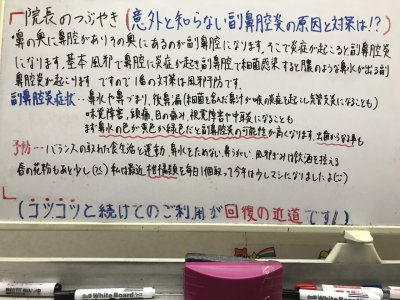 院長のつぶやき(意外と知らない副鼻腔炎の原因と対策は!?)
・鼻の奥に鼻腔がありその奥にあるのが副鼻腔になります。そこで炎症が起こると副鼻腔炎
になります。基本風邪で鼻腔に炎症が起き副鼻腔で細菌感染すると膿のような鼻水が出る副
鼻腔炎が起こります ですので1番の対策は風邪予防です。
副鼻腔炎症状‥鼻水や鼻づまり、後鼻漏(細菌を含んだ鼻汁が喉の炎症を起こし気管支炎になることも)
味覚障害、頭痛、目の痛み、視覚障害や中耳炎になることも
まず鼻水の色が黄色か緑色だと副鼻腔炎の可能性が高くなります、出血がある事も
予防‥・バランスの取れた食生活と運動、鼻水をためない、鼻うがい、風邪ぎみは飲酒を控える
春の花粉もあと少し(>_<)私は最近柑橘類を毎日1個取って今年は少しマシになりましたよ
(コツコツと続けてのご利用が回復の近道です!!)
White Board